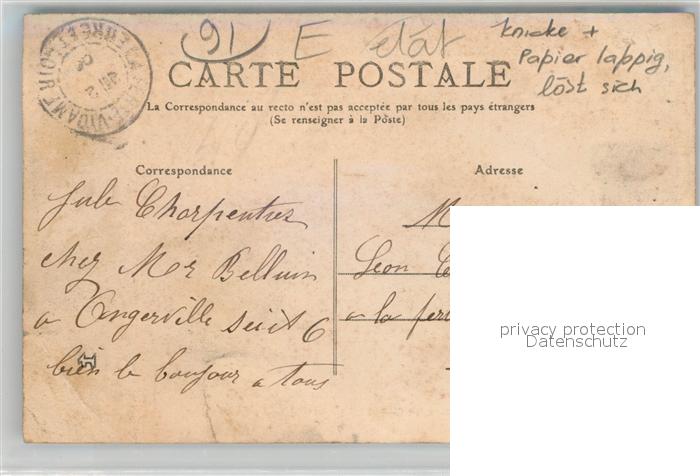 91 E état
Knicke +
Papier lappig,
löst sich
CARTE POSTALE
La Correspondance au recto n'est pas acceptée par tous les pays étrangers
(Se renseigner à la Poste)
Correspondance
Adresse
Jule Charpentier
chez Mer Belluin
a Angerville
bien le bonjour a tous
M
Leon
a la fer
privacy protection
Datenschutz